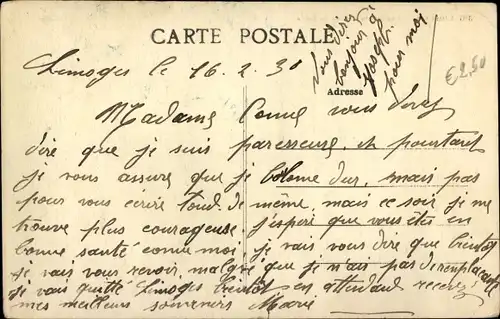 CARTE POSTALE
Limoges le 16.2.30
Vous direz
bonjour à
Joseph
pour moi
Adresse
€2,50
Madame, vous devez
dire que je suis paresseuse, et pourtant
je vous assure que je dur, mais pas
pour vous écrire tout de même, mais ce soir je me
trouve plus courageuse j'espère que vous êtes en
bonne santé comme moi je vais vous dire que bientôt
je vais vous revoir, malgré que je n'ai pas de remplaçante
je vais quitté Limoges bientôt en attendant recevez
mes meilleurs souvenirs Marie